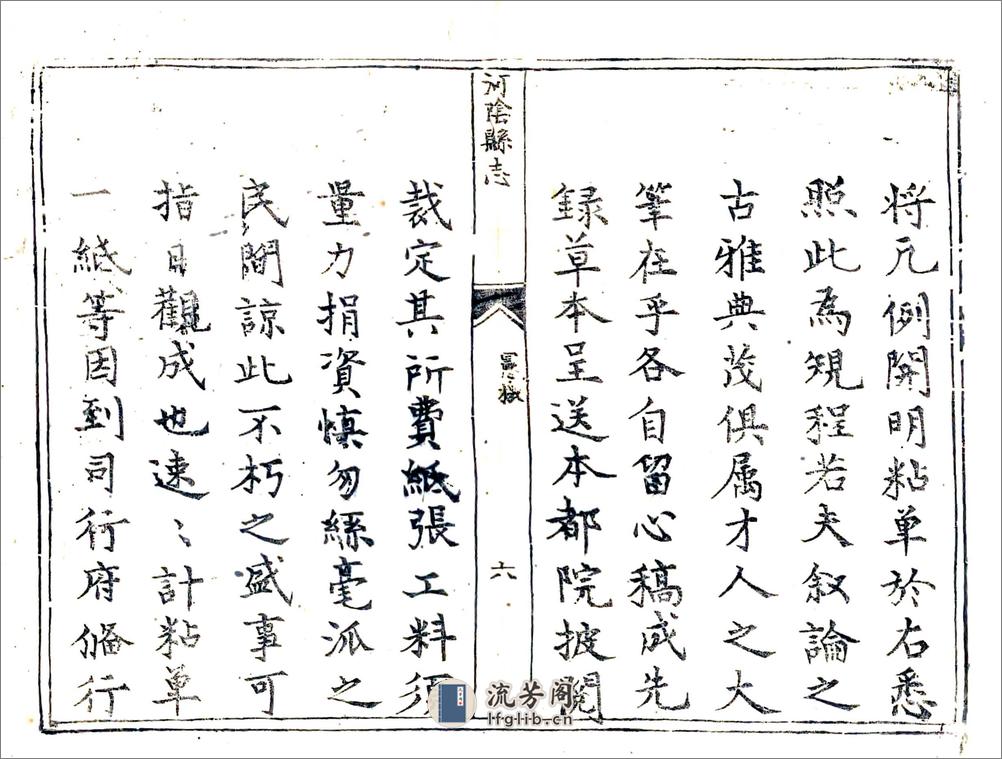 将凡例開明粘单於右悉
照此為規程若夫叙論之
古雅典茂俱属才人之大
筆在乎各自留心稿成先
録草本呈送本都院披閱
河陰縣志
憲檄
六
裁定其所費紙張工料須
量力捐資慎勿絲毫派之
民間諒此不朽之盛事可
指日觀成也速〻計粘单
一紙等因到司行府俻行
流芳阁
lfglib.cn